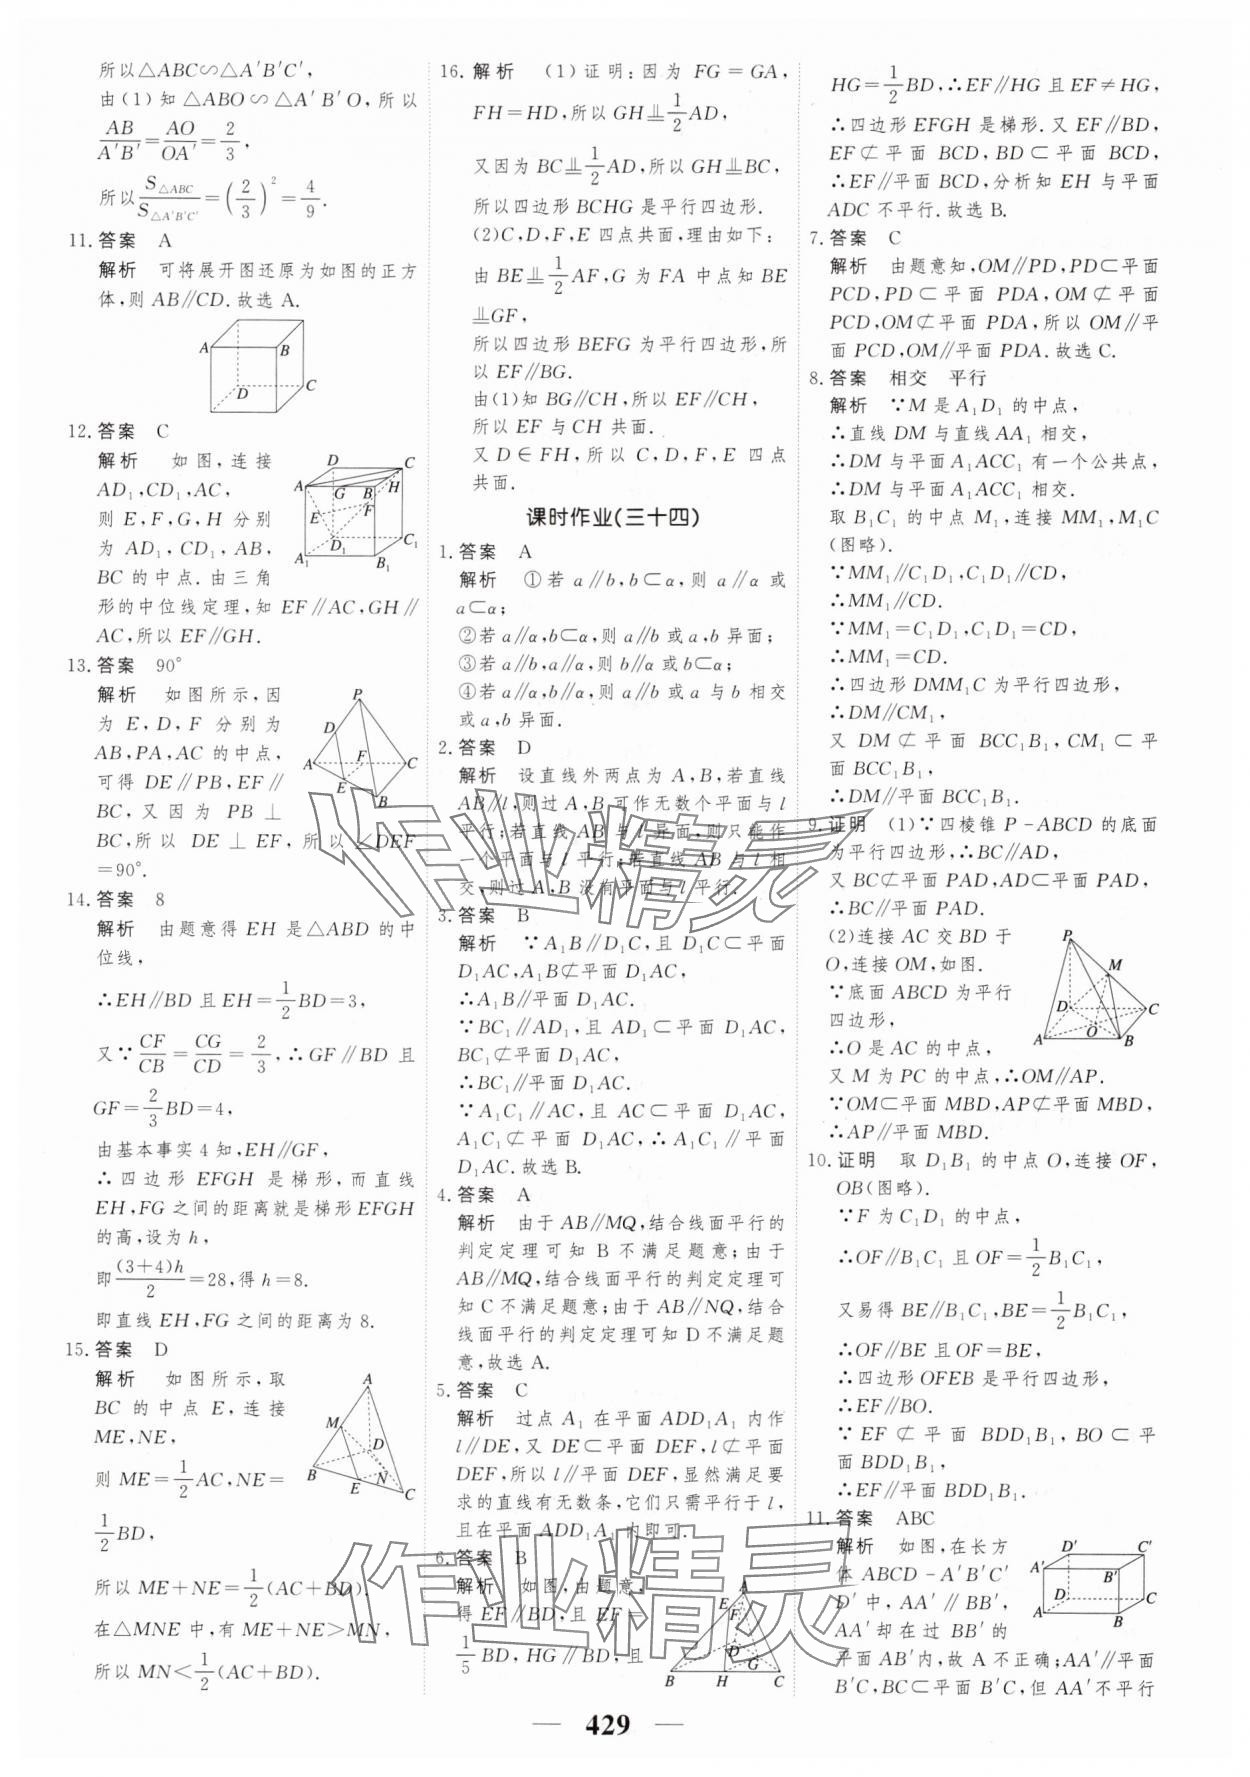 所以△ABC∽△A′B′C′,
由(1)知△ABO∽△A′B′O,所以
AB/A′B′=AO/OA′=2/3,
所以S△ABC/S△A′B′C′=(2/3)²=4/9.
11.答案 A
解析 可将展开图还原为如图的正方
体,则AB∥CD.故选A.
A
B
C
D
12.答案 C
解析 如图,连接
AD₁,CD₁,AC,
则E,F,G,H分别
为AD₁,CD₁,AB,
BC的中点.由三角
形的中位线定理,知EF∥AC,GH∥
AC,所以EF∥GH.
D
C
A
G
B
H
E
F
D₁
C₁
A₁
B₁
13.答案 90°
解析 如图所示,因
为E,D,F分别为
AB,PA,AC的中点,
可得DE∥PB,EF∥
BC,又因为PB⊥
BC,所以DE⊥EF,所以∠DEF
=90°.
P
D
F
A
C
E
B
14.答案 8
解析 由题意得EH是△ABD的中
位线,
∴EH∥BD且EH=1/2BD=3,
又∵CF/CB=CG/CD=2/3,∴GF∥BD且
GF=2/3BD=4,
由基本事实4知,EH∥GF,
∴四边形EFGH是梯形,而直线
EH,FG之间的距离就是梯形EFGH
的高,设为h,
即(3+4)h/2=28,得h=8.
即直线EH,FG之间的距离为8.
15.答案 D
解析 如图所示,取
BC的中点E,连接
ME,NE,
则ME=1/2AC,NE=
1/2BD,
所以ME+NE=1/2(AC+BD).
在△MNE中,有ME+NE>MN,
所以MN<1/2(AC+BD).
A
M
D
B
N
E
C
16.解析 (1)证明:因为FG=GA,
FH=HD,所以GH⫫1/2AD,
又因为BC⫫1/2AD,所以GH⫫BC,
所以四边形BCHG是平行四边形.
(2)C,D,F,E四点共面,理由如下:
由BE⫫1/2AF,G为FA中点知BE
⫫GF,
所以四边形BEFG为平行四边形,所
以EF∥BG.
由(1)知BG∥CH,所以EF∥CH,
所以EF与CH共面.
又D∈FH,所以C,D,F,E四点
共面.
课时作业(三十四)
1.答案 A
解析 ①若a∥b,b⊂α,则a∥α或
a⊂α;
②若a∥α,b⊂α,则a∥b或a,b异面;
③若a∥b,a∥α,则b∥α或b⊂α;
④若a∥α,b∥α,则a∥b或a与b相交
或a,b异面.
2.答案 D
解析 设直线外两点为A,B,若直线
AB∥l,则过A,B可作无数个平面与l
平行;若直线AB与l异面,则只能作
一个平面与l平行;若直线AB与l相
交,则过A,B没有平面与l平行.
3.答案 B
解析 ∵A₁B∥D₁C,且D₁C⊂平面
D₁AC,A₁B⊄平面D₁AC,
∴A₁B∥平面D₁AC.
∵BC₁∥AD₁,且AD₁⊂平面D₁AC,
BC₁⊄平面D₁AC,
∴BC₁∥平面D₁AC.
∵A₁C₁∥AC,且AC⊂平面D₁AC,
A₁C₁⊄平面D₁AC,∴A₁C₁∥平面
D₁AC.故选B.
4.答案 A
解析 由于AB∥MQ,结合线面平行的
判定定理可知B不满足题意;由于
AB∥MQ,结合线面平行的判定定理可
知C不满足题意;由于AB∥NQ,结合
线面平行的判定定理可知D不满足题
意,故选A.
5.答案 C
解析 过点A₁在平面ADD₁A₁内作
l∥DE,又DE⊂平面DEF,l⊄平面
DEF,所以l∥平面DEF,显然满足要
求的直线有无数条,它们只需平行于l,
且在平面ADD₁A₁内即可.
6.答案 B
解析 如图,由题意,
得EF∥BD,且EF=
1/5BD,HG∥BD,且
A
E
F
D
G
B
H
C
HG=1/2BD,∴EF∥HG且EF≠HG,
∴四边形EFGH是梯形.又EF∥BD,
EF⊄平面BCD,BD⊂平面BCD,
∴EF∥平面BCD,分析知EH与平面
ADC不平行.故选B.
7.答案 C
解析 由题意知,OM∥PD,PD⊂平面
PCD,PD⊂平面PDA,OM⊄平面
PCD,OM⊄平面PDA,所以OM∥平
面PCD,OM∥平面PDA.故选C.
8.答案 相交 平行
解析 ∵M是A₁D₁的中点,
∴直线DM与直线AA₁相交,
∴DM与平面A₁ACC₁有一个公共点,
∴DM与平面A₁ACC₁相交.
取B₁C₁的中点M₁,连接MM₁,M₁C
(图略).
∵MM₁∥C₁D₁,C₁D₁∥CD,
∴MM₁∥CD.
∵MM₁=C₁D₁,C₁D₁=CD,
∴MM₁=CD.
∴四边形DMM₁C为平行四边形,
∴DM∥CM₁,
又DM⊄平面BCC₁B₁,CM₁⊂平
面BCC₁B₁,
∴DM∥平面BCC₁B₁.
9.证明 (1)∵四棱锥P-ABCD的底面
为平行四边形,∴BC∥AD,
又BC⊄平面PAD,AD⊂平面PAD,
∴BC∥平面PAD.
(2)连接AC交BD于
O,连接OM,如图.
∵底面ABCD为平行
四边形,
∴O是AC的中点,
又M为PC的中点,∴OM∥AP.
∵OM⊂平面MBD,AP⊄平面MBD,
∴AP∥平面MBD.
P
M
D
C
O
A
B
10.证明 取D₁B₁的中点O,连接OF,
OB(图略).
∵F为C₁D₁的中点,
∴OF∥B₁C₁且OF=1/2B₁C₁,
又易得BE∥B₁C₁,BE=1/2B₁C₁,
∴OF∥BE且OF=BE,
∴四边形OFEB是平行四边形,
∴EF∥BO.
∵EF⊄平面BDD₁B₁,BO⊂平
面BDD₁B₁,
∴EF∥平面BDD₁B₁.
11.答案 ABC
解析 如图,在长方
体ABCD-A′B′C′
D′中,AA′∥BB′,
AA′却在过BB′的
平面AB′内,故A不正确;AA′∥平面
B′C,BC⊂平面B′C,但AA′不平行
D′
C′
A′
B′
D
C
A
B
429
作业精灵
作业精灵